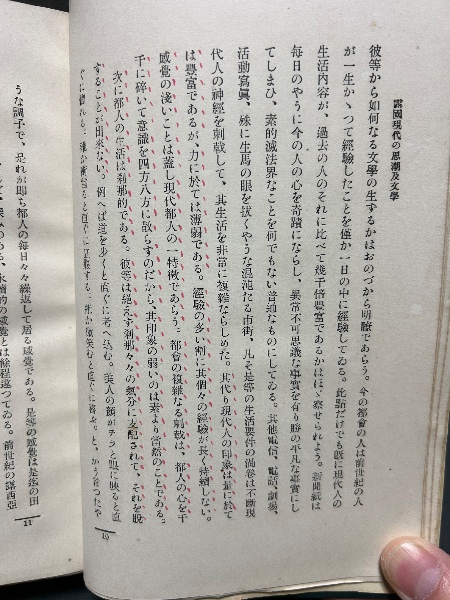 露國現代の思潮及文學
彼等から如何なる文學の生するかはおのづから明瞭であらう。今の都會の人は前世紀の人
が一生かゝつて經驗したことを僅か一日の中に經驗してゐる。此點だけでも既に現代人の
生活内容が、過去の人のそれに比べて幾千倍豊富であるかはほゞ察せられよう。新聞紙は
毎日のやうに今の人の心を奇蹟にならし、異常不可思議な事實を有り勝の平凡な事實にし
てしまひ、素的滅法界なことを何でもない普通なものにしてゐる。其他電信、電話、劇場、
活動寫眞、殊に生馬の眼を拔くやうな混沌たる市街、凡そ是等の生活要件の渦卷は不斷現
代人の神經を刺戟して、其生活を非常に複雜ならしめた。其代り現代人の印象は量に於て
は豊富であるが、力に於ては薄弱である。經驗の多い割に其個々の經驗が長く持續しない。
感覺の淺いことは蓋し現代都人の一特徴であらう。都會の複雜なる刺戟は、都人の心を千
千に碎いて意識を四方八方に散らすのだから、其印象の弱いのは素より當然のことである。
次に都人の生活は刹那的である。彼等は絕えず刹那々々の氣分に支配されて、それを脱
することが出來ない。例へば道を歩くと直ぐに考へ込む。美人の顔がチラと眼に映ると直
ぐに
10
うな調子で、是れが即ち都人の毎日々々繰返して居る感覺である。是等の感覺は是迄の田
的の感覺とは餘程違つてゐる。前世紀の露西亞
11